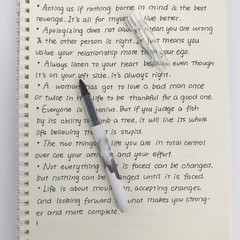 • Acting as if nothing borne in mind is the best
revenge. It's all for myself live better.
• Apologizing does not always mean you are wrong
& the other person is right. It just means you
value your relationship more than your ego.
• Always listen to your heart because even though
it's on your left side, it's always right.
• A woman has got to love a bad man once
or twice in her life to be thankful for a good one.
• Everyone is a genius. But if you judge a fish
by its ability to climb a tree, it will live its whole
life believing that it is stupid.
• The two things in life you are in total control
over are your attitude and your effort.
• Not everything that is faced can be changed,
but nothing can be changed until it is faced.
• Life is about moving on, accepting changes
and looking forward to what makes you strong-
er and more complete.